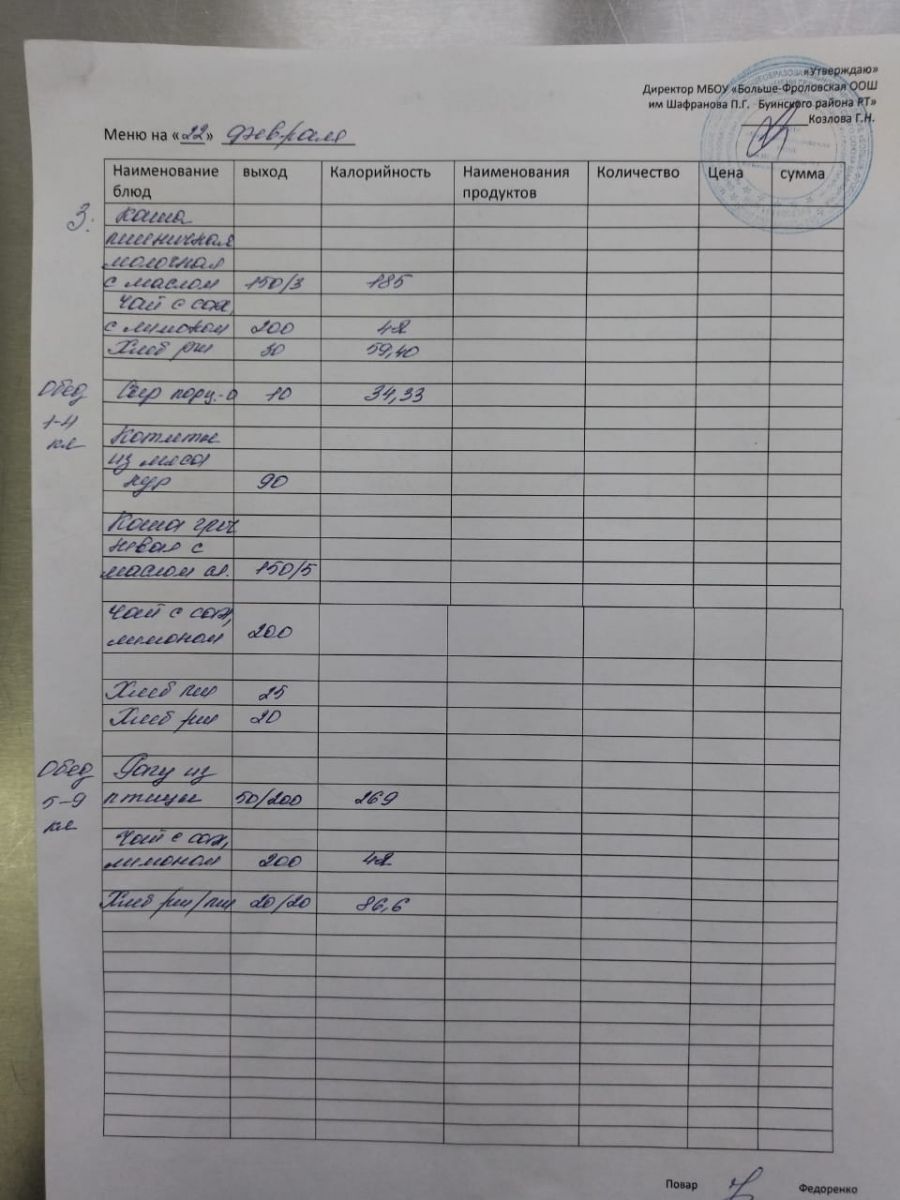 «Утверждаю»
Директор МБОУ «Больше-Фроловская ООШ
им Шафранова П.Г. Буинского района РТ»
Козлова Г.Н.
Меню на «22» февраля
Наименование блюд выход Калорийность Наименования продуктов Количество Цена сумма
З. каша
пшеничная
молочная
с маслом 150/3 185
Чай с сах,
с лимоном 200 42
Хлеб рж 30 59,40
Обед Сыр 10 34,33
1-4
кл Котлеты
из мяса
кур 90
Каша греч
невая с
маслом сл. 150/5
Чай с сах,
лимоном 200
Хлеб пш 25
Хлеб рж 20
Обед Рагу из
5-9 птицы 50/200 269
кл
Чай с сах,
лимоном 200 42
Хлеб рж/пш 20/20 86,6
Повар Федоренко